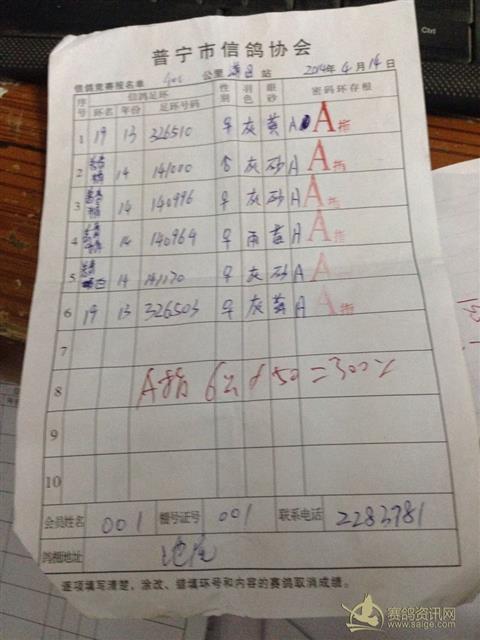 普宁市信鸽协会
信鸽竞赛报名单 400 公里 站 2014年4月14日
序号 信鸽足环 环名 年份 足环号码 性别 羽色 眼砂 密码环存根
1 19 13 326510 ♀ 灰 黄 A A指
2 14 141000 灰 砂 A A指
3 14 140996 ♀ 灰 砂 A A指
4 14 140964 ♀ 雨 黄 A A指
5 14 141170 ♀ 灰 砂 A A指
6 19 13 326503 ♀ 灰 黄 A A指
7
8 A指 6 50=300
9
10
会员姓名 001 棚号证号 001 联系电话 2283781
鸽棚地址
逐项填写清楚，涂改、错填环号和内容的赛鸽取消成绩。
赛鸽资讯网
www.saige.com